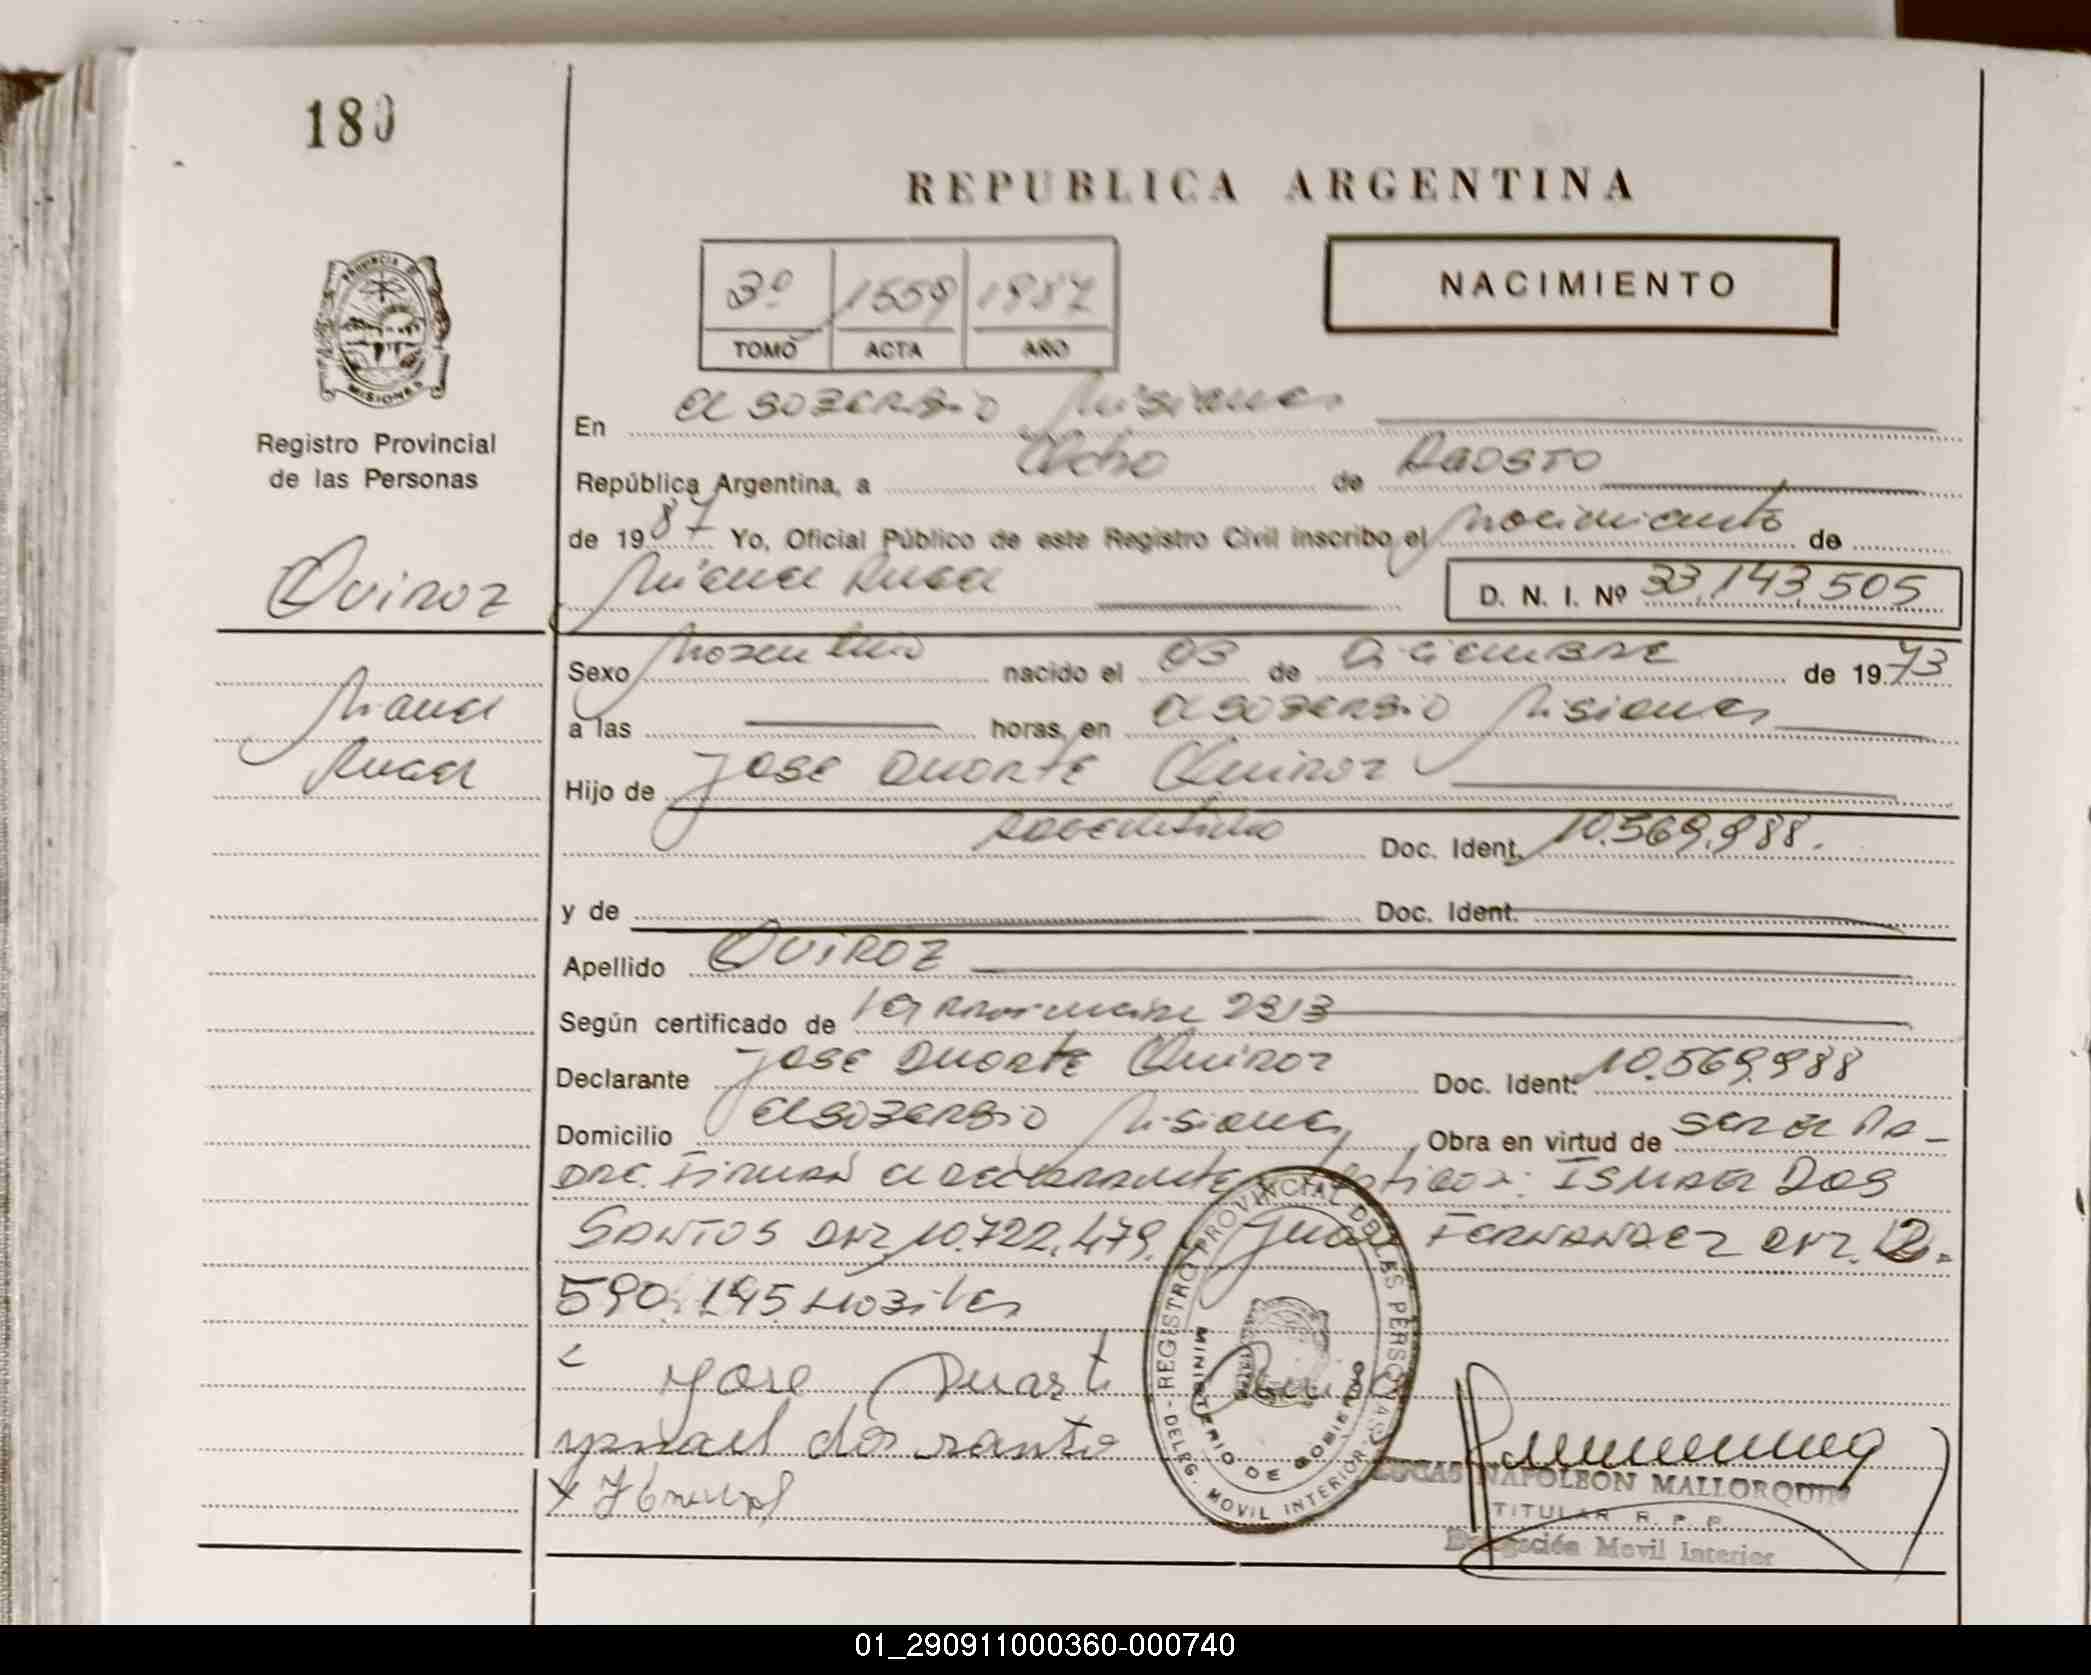 180
REPUBLICA ARGENTINA
3º 1559 1987
TOMO ACTA AÑO
NACIMIENTO
PROVINCIA DE MISIONES
Registro Provincial
de las Personas
En El Soberbio Misiones
República Argentina, a Ocho de Agosto
de 1987 Yo, Oficial Público de este Registro Civil inscribo el Nacimiento de
Miguel Angel D. N. I. Nº 33,143,505
Quiroz
Miguel
Angel
Sexo Masculino nacido el 03 de Diciembre de 1973
a las horas, en El Soberbio Misiones
Hijo de Jose Duarte Quiroz
Argentino Doc. Ident. 10.569.988.
y de Doc. Ident.
Apellido QUIROZ
Según certificado de 2313
Declarante Jose Duarte Quiroz Doc. Ident: 10.569.988
Domicilio El Soberbio Misiones Obra en virtud de ser el Pa-
dre. Firman el declarante Testigos: ISMAEL DOS
SANTOS DNI. 10.722.479. Juan FERNANDEZ DNI. 12.
590.195 Habiles
Jose Duarte Quiroz
ysmael dos santo
REGISTRO PROVINCIAL DE LAS PERSONAS - DELEG. MOVIL INTERIOR -
MINISTERIO DE GOBIERNO
LUCAS NAPOLEON MALLORQUIN
TITULAR R. P. P.
Delegación Movil Interior
01_290911000360-000740